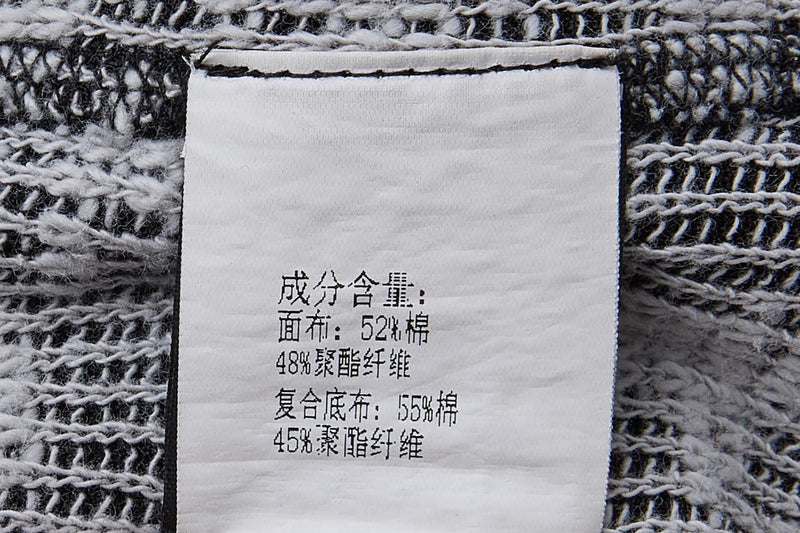 成分含量：
面布：52%棉
48%聚酯纤维
复合底布：55%棉
45%聚酯纤维